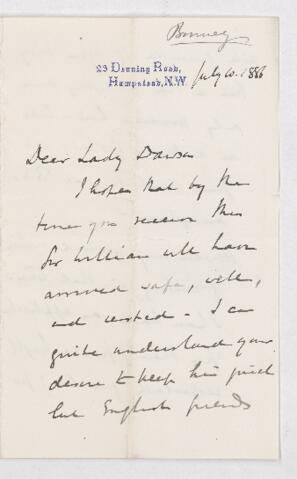 Bonney
23 Denning Road,
Hampstead, N.W.
July 10. 1886
Dear Lady Dawson
I hope that by the
time you receive this
Sir William will have
arrived safe, well,
and rested - I can
quite understand your
desire to keep him quiet
but English friends